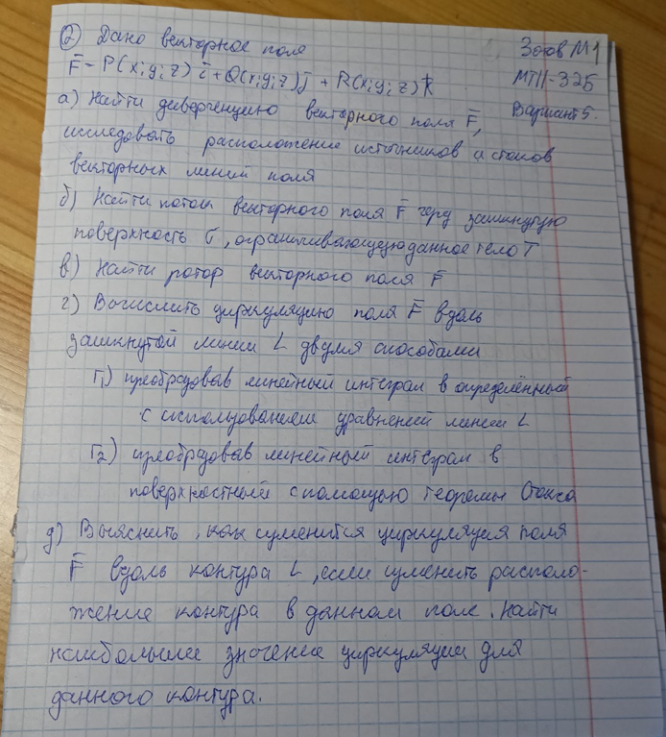 ② Дано векторное поля
Зотов М1
F̄ = P(x;y;z) ī + Q(x;y;z) j̄ + R(x;y;z) k̄
МТ11-32Б
а) Найти дивергенцию векторного поля F̄,
Вариант 5.
исследовать расположение источников и стоков
векторных линий поля
б) Найти поток векторного поля F̄ через замкнутую
поверхность σ, ограничивающую данное тело T
в) Найти ротор векторного поля F̄
г) Вычислить циркуляцию поля F̄ вдоль
замкнутой линии L двумя способами
г₁) преобразовав линейный интеграл в определённый
с использованием уравнений линии L
г₂) преобразовав линейный интеграл в
поверхностный с помощью теоремы Стокса
д) Выяснить, как изменится циркуляция поля
F̄ вдоль контура L, если изменить располо-
жение контура в данном поле. Найти
наибольшее значение циркуляции для
данного контура.